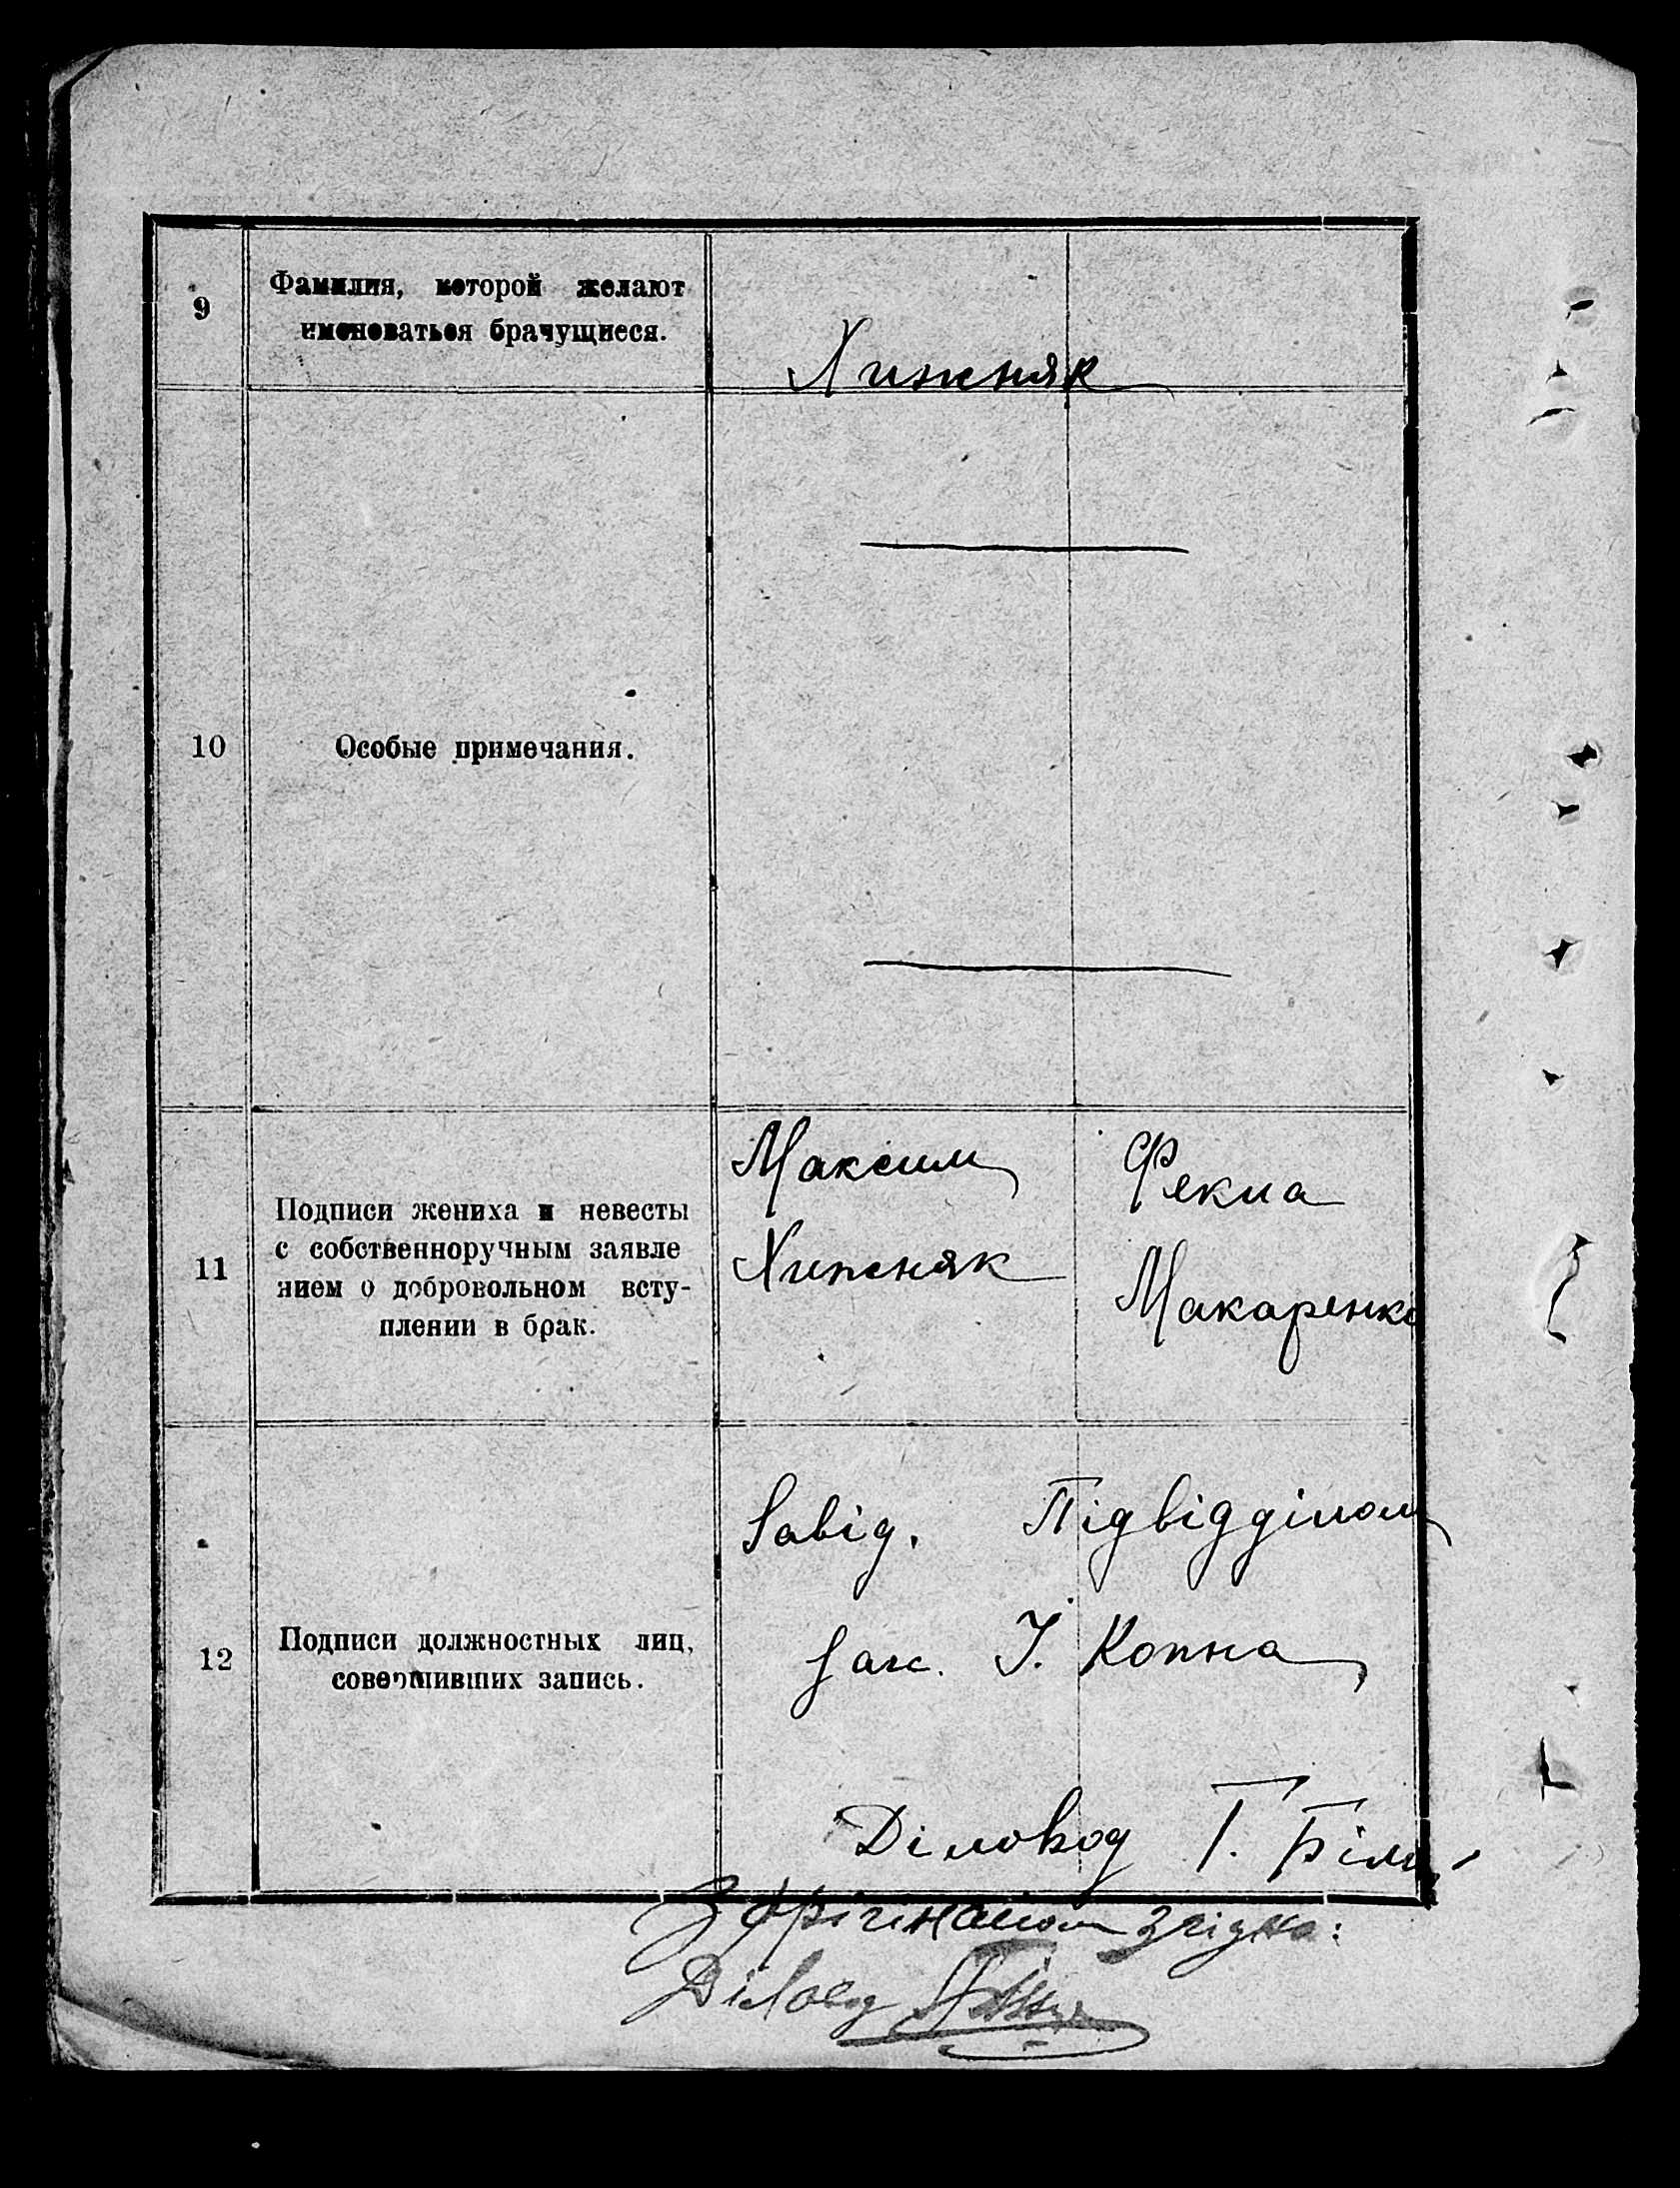 9
Фамилия, которой желают
именоваться брачущиеся.
Хижняк
10
Особые примечания.
11
Подписи жениха и невесты
с собственноручным заявле
нием о добровольном всту-
плении в брак.
Максим
Хижняк
Фекла
Макаренко
12
Подписи должностных лиц,
совершивших запись.
Завід. Підвідділом
І. Копна
Діловод Г. Біл
З оригіналом згідно:
Діловод